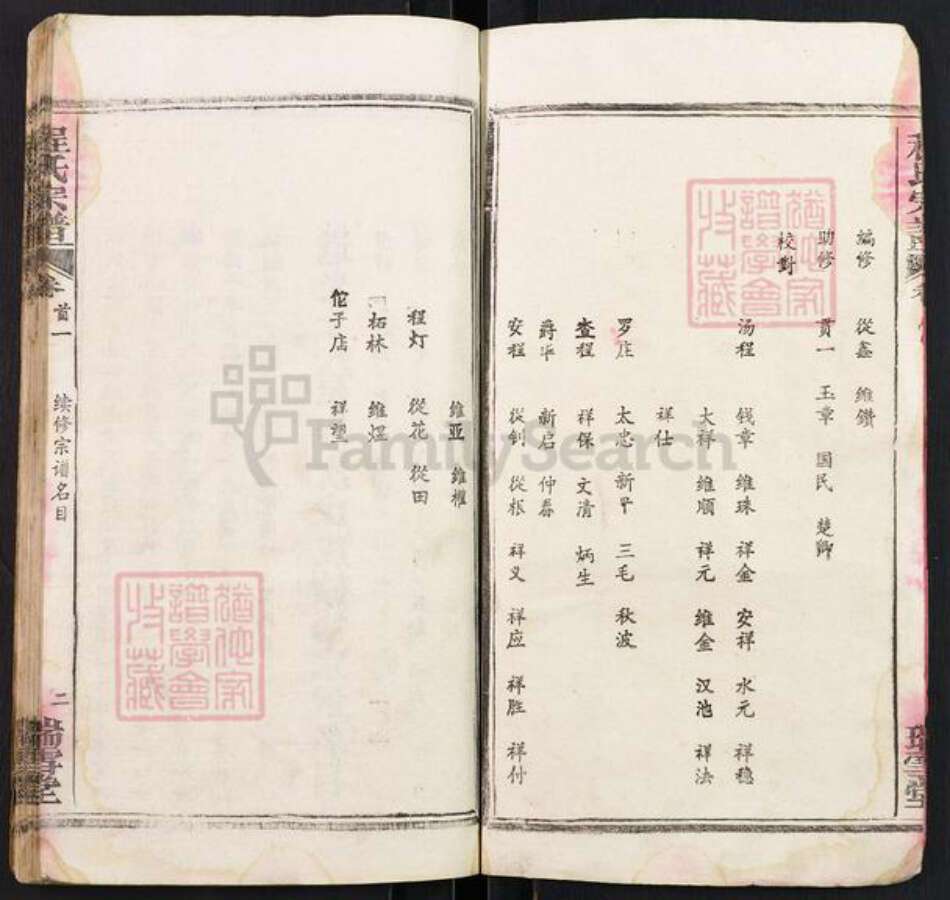 編修 從鑫 維鑽
助修 貫一 玉章 国民 楚卿
校對
汤程 钱章 维珠 祥金 安祥 水元 祥穩
大祥 维顺 祥元 维金 汉池 祥法
祥仕
罗庄 太忠 新 三毛 秋波
查程 祥保 文清 炳生
爵 新启 仲春
安程 從釗 從根 祥义 祥应 祥胜 祥付
維亚 維權
程灯 從花 從田
拓林 維煜
佗子店 祥望
程氏宗譜 卷首一 续修宗谱名目 二 瑞雪堂
猶他家譜學會收藏
猶他家譜學會收藏
FamilySearch